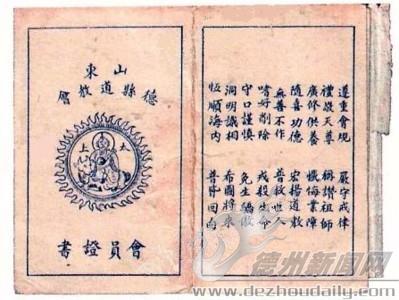 山東
德縣道教會
上
會員證書
遵重會規 嚴守戒律
禮敬天尊 稱讚祖師
廣修供養 懺悔業障
隨喜功德 宏揚道教
無善不作 普救世人
嗜好削除 戒殺生命
守口謹慎 免生
洞明識相 希圖將來
恆順海內 普皆回向
德州新闻网
www.dezhoudaily.com